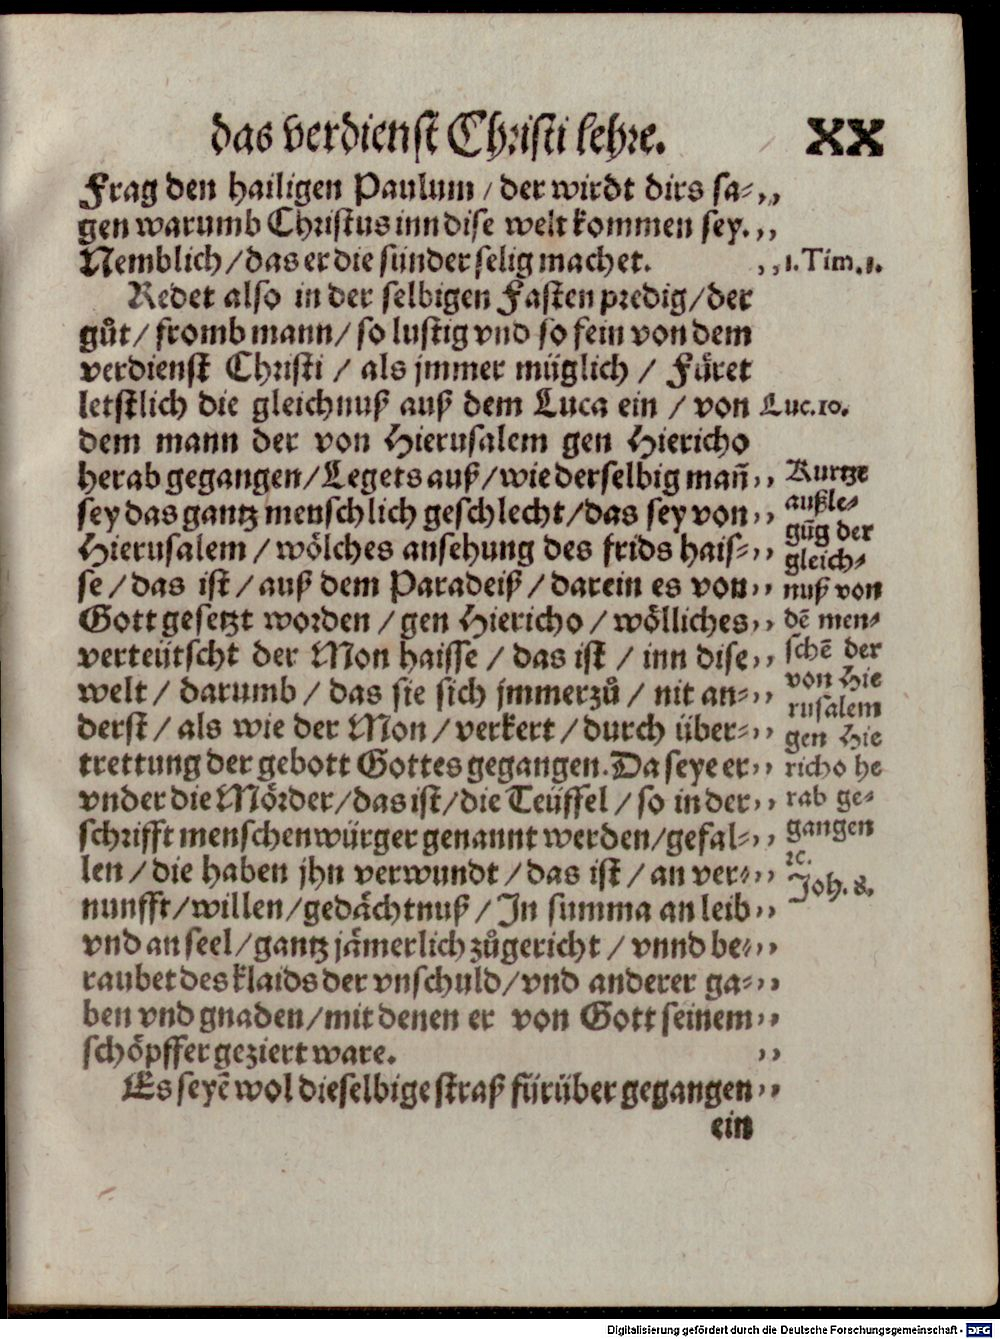 das verdienst Christi lehre. XX
Frag den hailigen Paulum / der wirdt dirs sa⸗,,
gen warumb Christus inn dise welt kommen sey.,,
Nemblich / das er die sünder selig machet. ,,1. Tim. 1.
Redet also in der selbigen Fasten predig / der
gůt / fromb mann / so lustig vnd so fein von dem
verdienst Christi / als jmmer müglich / Füret
letstlich die gleichnuß auß dem Luca ein / von Luc. 10.
dem mann der von Hierusalem gen Hiericho
herab gegangen / Legets auß / wie derselbig mañ,,
sey das gantz menschlich geschlecht / das sey von,,
Hierusalem / wölches ansehung des frids hais⸗,,
se / das ist / auß dem Paradeiß / darein es von,,
Gott gesetzt worden / gen Hiericho / wölliches,,
verteütscht der Mon haisse / das ist / inn dise,,
welt / darumb / das sie sich jmmerzů / nit an⸗,,
derst / als wie der Mon / verkert / durch über⸗,,
trettung der gebott Gottes gegangen. Da seye er,,
vnder die Mörder / das ist / die Teüffel / so in der,,
schrifft menschenwürger genannt werden / gefal⸗,,
len / die haben jhn verwundt / das ist / an ver⸗,,
nunfft / willen / gedächtnuß / In summa an leib,,
vnd an seel / gantz jämerlich zůgericht / vnnd be⸗,,
raubet des klaids der vnschuld / vnd anderer ga⸗,,
ben vnd gnaden / mit denen er von Gott seinem,,
schöpffer geziert ware. ,,
Es seyē wol dieselbige straß fürüber gegangen,,
ein
Kurtze
außle⸗
gūg der
gleich⸗
nuß von
dē men⸗
schē der
von Hie
rusalem
gen Hie
richo he
rab ge⸗
gangen
ꝛc.
Joh. 8.
Digitalisierung gefördert durch die Deutsche Forschungsgemeinschaft - DFG